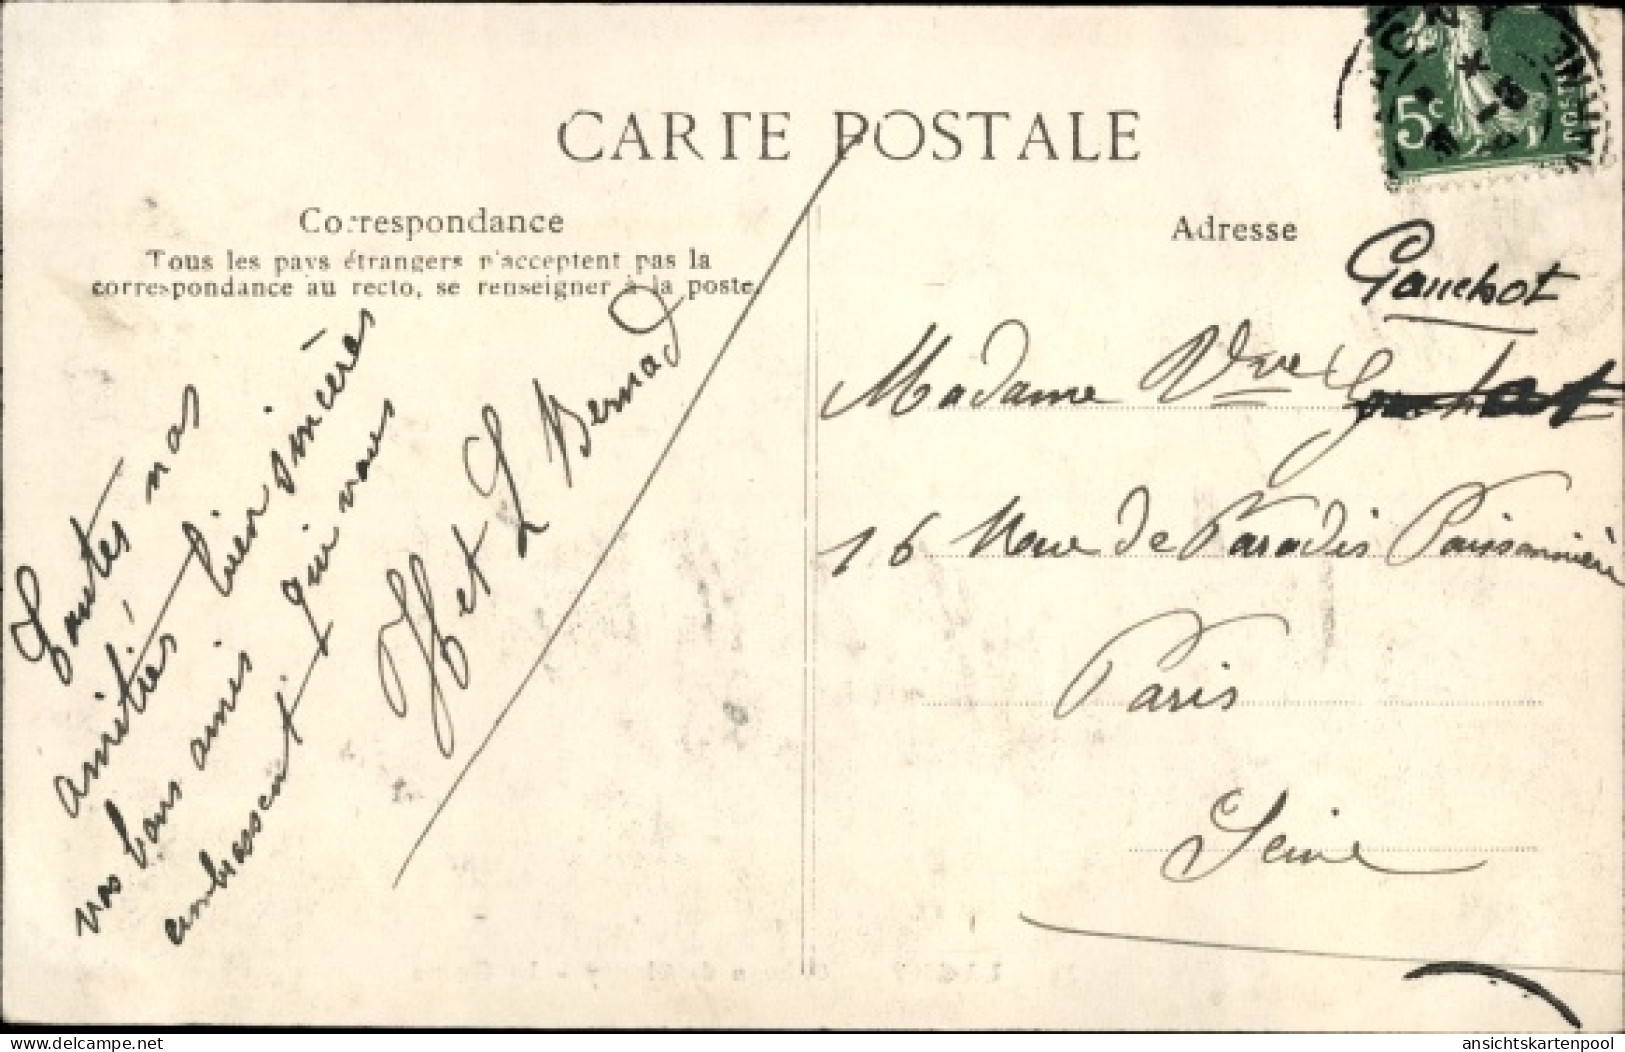 CARTE POSTALE
Correspondance
Tous les pays étrangers n'acceptent pas la
correspondance au recto, se renseigner à la poste.
Toutes nos
amitiés bien sincères
vos bons amis qui vous
embrassent
et L Bernad
Adresse
Gauchot
Madame Vve
16 Rue de Paradis Poissonnière
Paris
Seine
5c
POSTES
delcampe.net
ansichtskartenpool